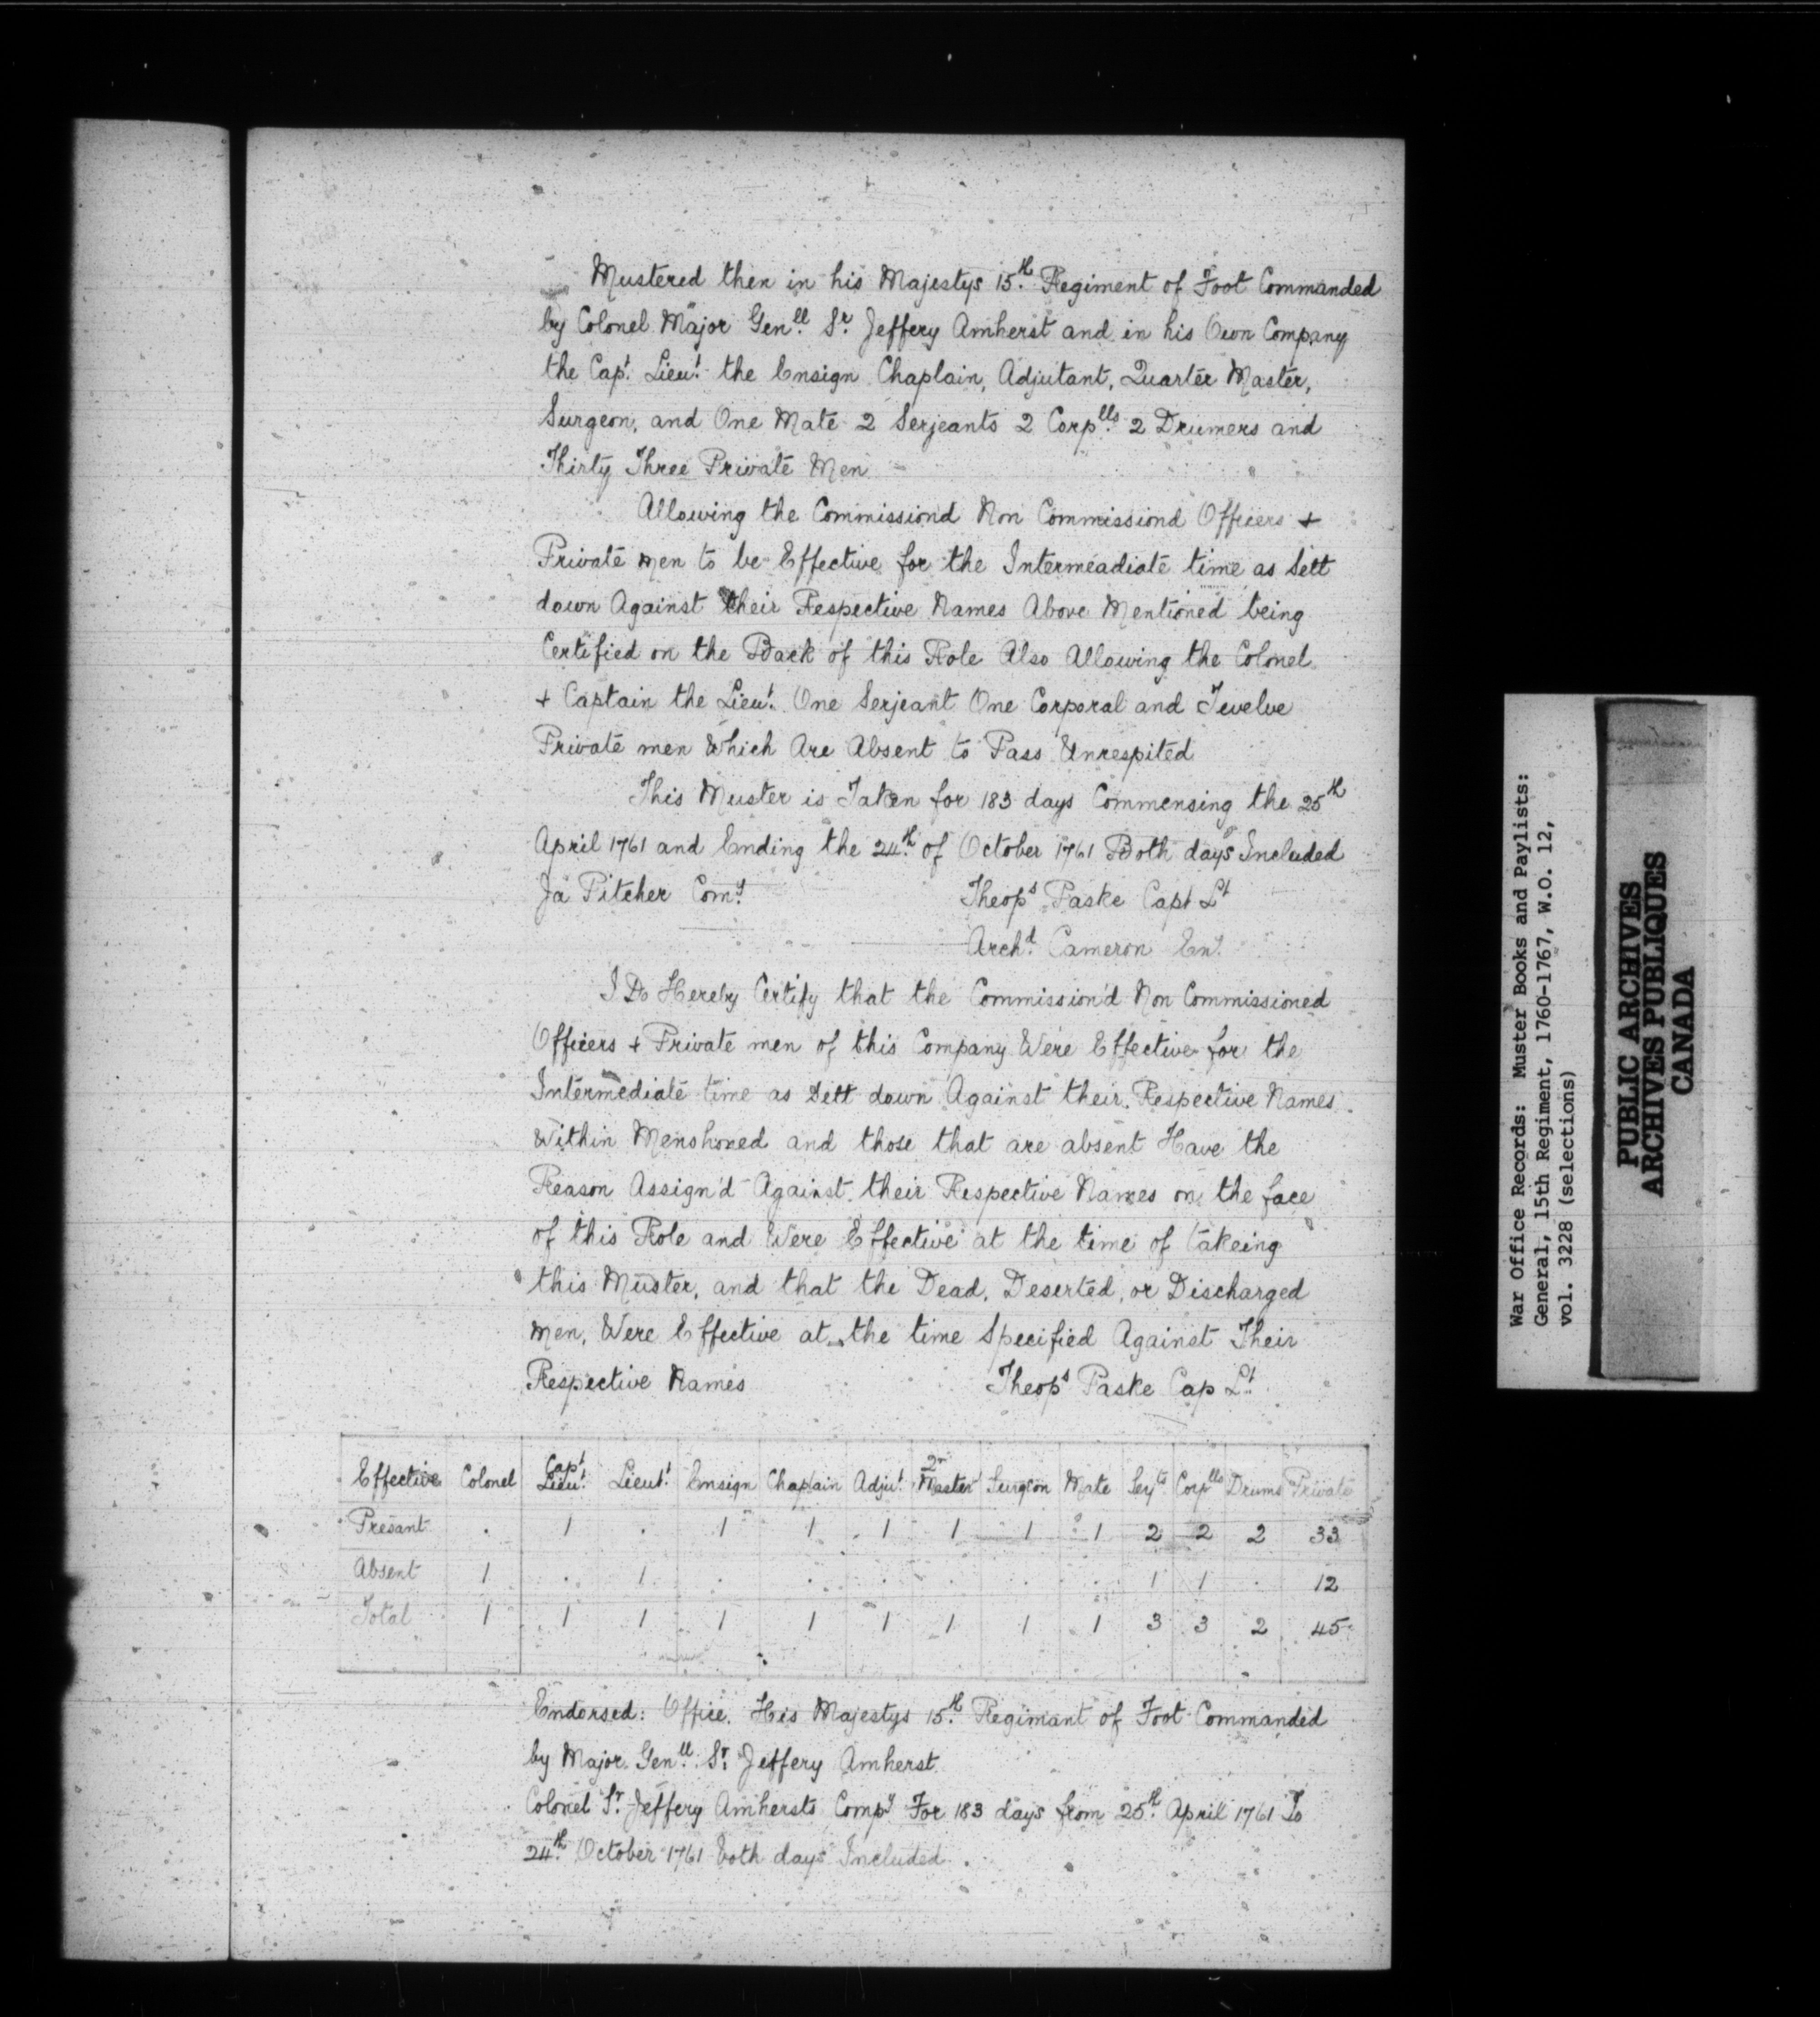 Mustered then in his Majestys 15th Regiment of Foot Commanded
by Colonel Major Genll Sr Jeffery Amherst and in his Own Company
the Capt Lieut the Ensign Chaplain, Adjutant, Quarter Master,
Surgeon, and One Mate 2 Serjeants 2 Corplls 2 Drumers and
Thirty Three Private Men
Allowing the Commissiond Non Commissiond Officers +
Private men to be Effective for the Intermeadiate time as Sett
down Against their Respective Names Above Mentioned being
Certified on the Back of this Role Also Allowing the Colonel
+ Captain the Lieut One Serjeant One Corporal and Twelve
Private men Which Are Absent to Pass Unrespited
This Muster is Taken for 183 days Commensing the 25th
April 1761 and Ending the 24th of October 1761 Both days Included
Ja Pitcher Comy Theops Paske Capt Lt
Archd Cameron Ens
I Do Hereby Certify that the Commission'd Non Commissioned
Officers + Private men of this Company Were Effective for the
Intermediate time as Sett down Against their Respective Names
Within Menshoned and those that are absent Have the
Reason Assign'd Against their Respective Names on the face
of this Role and Were Effective at the time of takeing
this Muster, and that the Dead, Deserted, or Discharged
Men, Were Effective at the time Specified Against Their
Respective Names Theops Paske Cap Lt
Effective Colonel Capt Lieut Lieut Ensign Chaplain Adjut Qr Master Surgeon Mate Serjts Corplls Drums Private
Presant . 1 . 1 1 1 1 1 1 2 2 2 33
Absent 1 . 1 . . . . . . 1 1 . 12
Total 1 1 1 1 1 1 1 1 1 3 3 2 45
Endorsed: Office. His Majestys 15th Regimant of Foot Commanded
by Major Genll Sr Jeffery Amherst.
Colonel Sr Jeffery Amhersts Compy For 183 days from 25th April 1761 To
24th October 1761 both days Included.
War Office Records: Muster Books and Paylists:
General, 15th Regiment, 1760-1767, W.O. 12,
vol. 3228 (selections)
PUBLIC ARCHIVES
ARCHIVES PUBLIQUES
CANADA